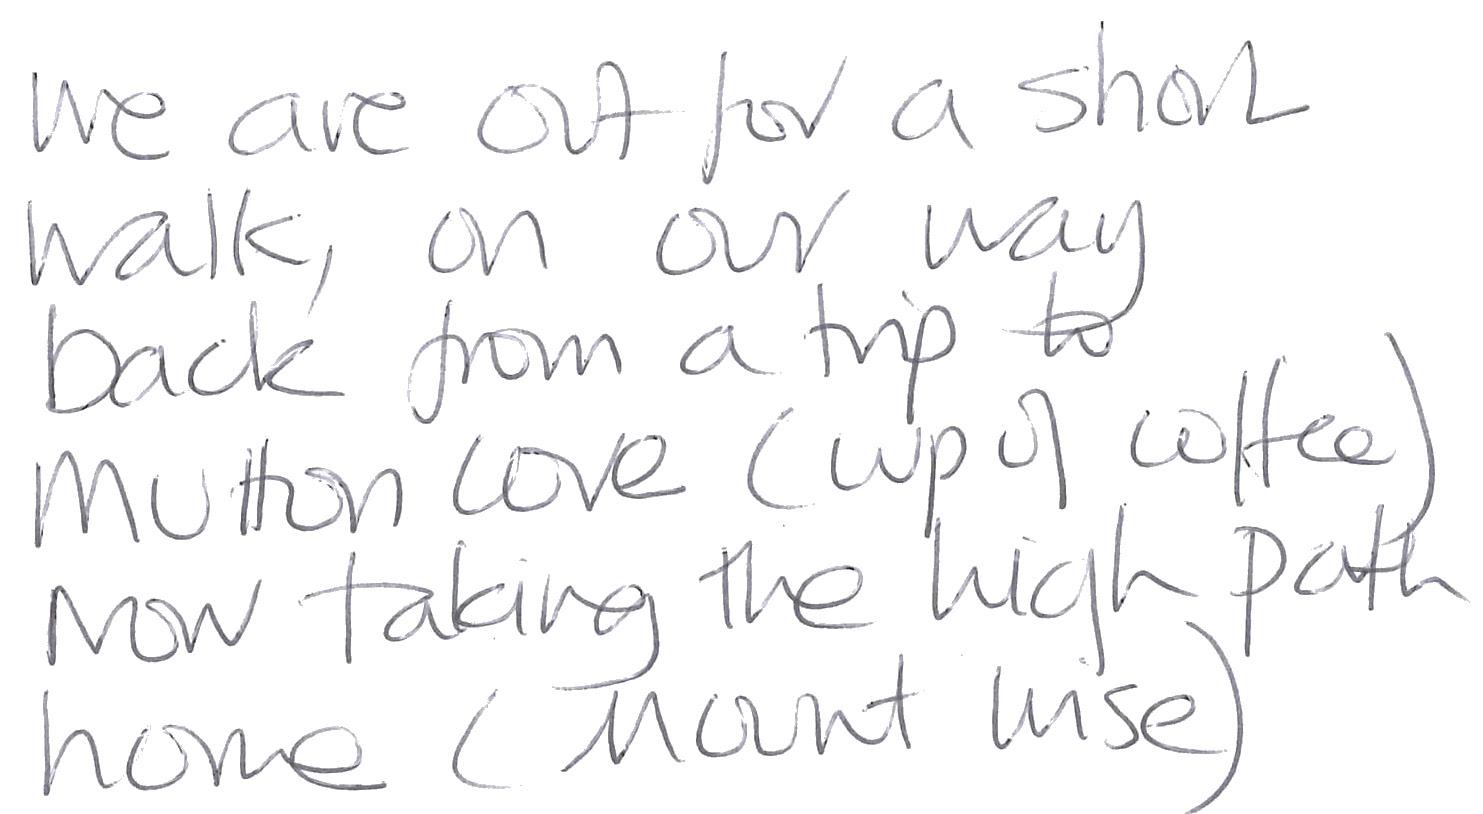 We are out for a short
walk, on our way
back from a trip to
Mutton Cove (cup of coffee)
Now taking the high path
home (Mount Wise)